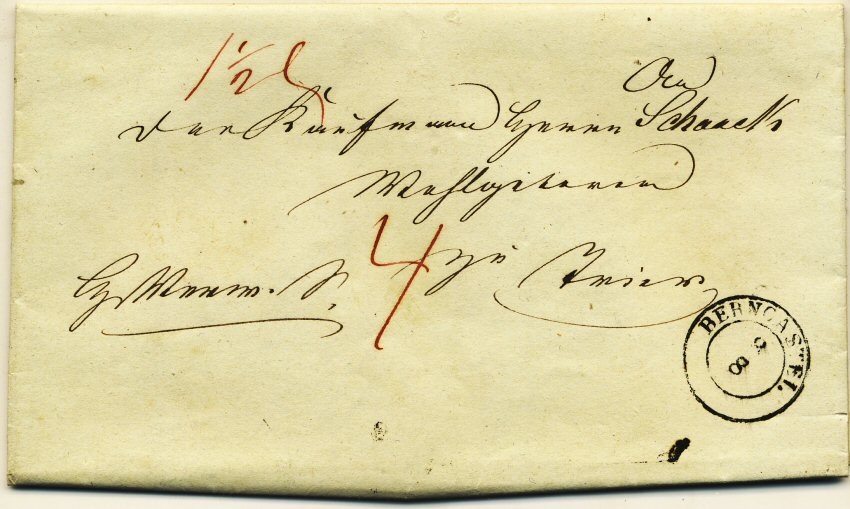 1 1/2 S
An
den Kaufmann Herrn Schaack
Wohlgeboren
4
zu Trier
BERNCASTEL
8